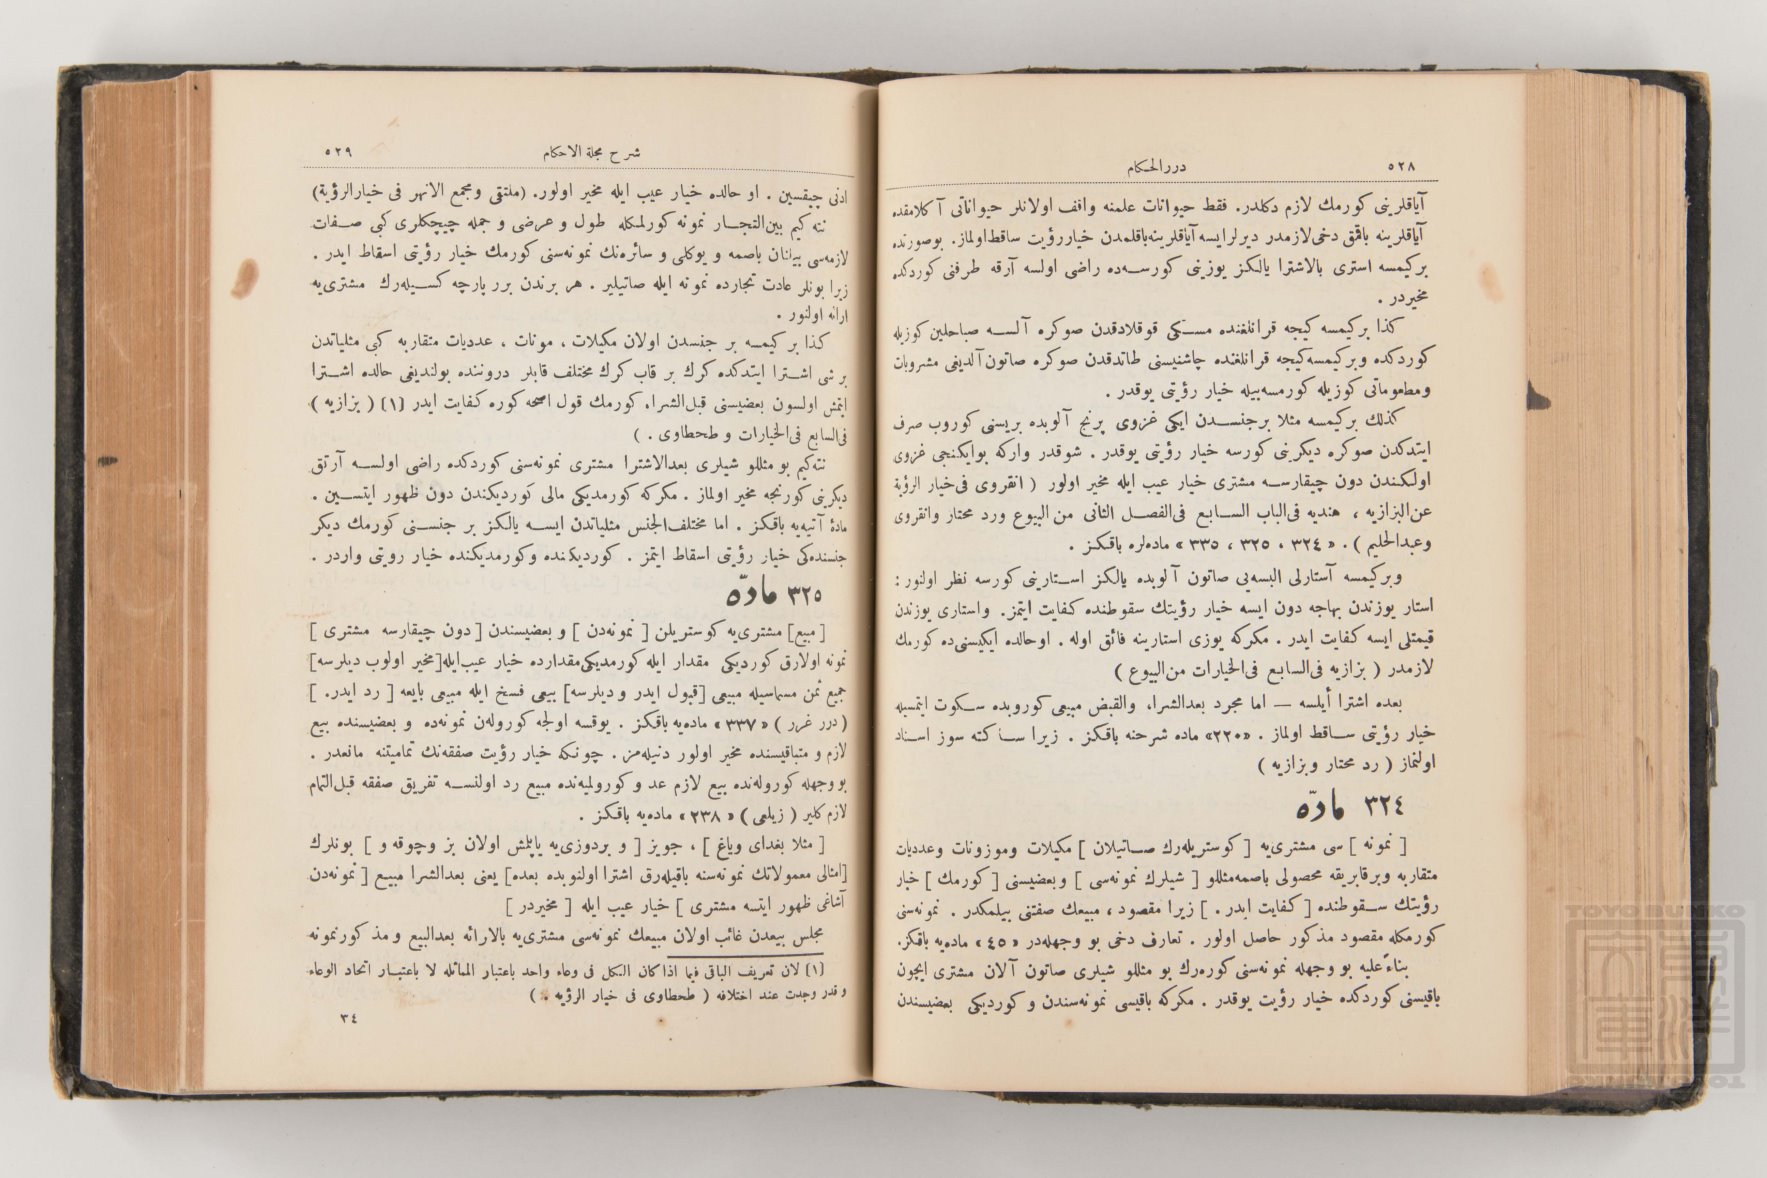 ٥٢٨
دررالحكام
آياقلرينی كورمك لازم دكلدر. فقط حيوانات علمنه واقف اولانلر حيواناتی آكلامقده
آياقلرينه باقمق دخی لازمدر ديرلرايسه آياقلرينه باقلمدن خياررؤيت ساقط اولماز. بوصورتده
بركيمسه استری بالاشترا يالكز يوزينی كورسه‌ده راضی اولسه آرقه طرفنی كوردكده
مخيردر .
كذا بركيمسه كيجه قرانلغنده مسكی قوقلادقدن صوكره آلسه صباحلين كوزيله
كوردكده وبركيمسه كيجه قرانلغنده چاشنيسنی طاتدقدن صوكره صاتون آلديغی مشروبات
ومطعوماتی كوزيله كورمسه‌بيله خيار رؤيتی يوقدر .
كذلك بركيمسه مثلا برجنسدن ايكی غزوی پرنج آلوبده بريسنی كوروب صرف
ايتدكدن صوكره ديكرينی كورسه خيار رؤيتی يوقدر . شوقدر واركه بوايكنجی غزوی
اولكندن دون چيقارسه مشتری خيار عيب ايله مخير اولور ( انقروی فی خيار الرؤية
عن البزازيه ، هنديه فی الباب السابع فی الفصل الثانی من البيوع ورد محتار وانقروی
وعبدالحليم ) . «٣٢٤ ، ٣٢٥ ، ٣٣٥» ماده‌لره باقكز .
وبركيمسه آستارلی البسه‌یی صاتون آلوبده يالكز استارينی كورسه نظر اولنور :
استار يوزندن بهاجه دون ايسه خيار رؤيتك سقوطنده كفايت ايتمز . واستاری يوزندن
قيمتلی ايسه كفايت ايدر . مكركه يوزی استارينه فائق اوله . اوحالده ايكيسنی‌ده كورمك
لازمدر ( بزازيه فی السابع فی الخيارات من البيوع )
بعده اشترا أيلسه — اما مجرد بعدالشراء والقبض مبيعی كوروبده سكوت ايتمسيله
خيار رؤيتی ساقط اولماز . «٢٢٠» ماده شرحنه باقكز . زيرا ساكته سوز اسناد
اولنماز ( رد محتار وبزازيه )
٣٢٤ مادّه
[ نمونه ] سی مشتری‌يه [ كوستريله‌رك صاتيلان ] مكيلات وموزونات وعدديات
متقاربه وبرفابريقه محصولی باصمه‌مثللو [ شيلرك نمونه‌سی ] وبعضيسنی [ كورمك ] خيار
رؤيتك سقوطنده [ كفايت ايدر . ] زيرا مقصود ، مبيعك صفتنی بيلمكدر . نمونه‌سنی
كورمكله مقصود مذكور حاصل اولور . تعارف دخی بو وجهله‌در «٤٥» ماده‌يه باقكز.
بناءً عليه بو وجهله نمونه‌سنی كوره‌رك بو مثللو شيلری صاتون آلان مشتری ايچون
باقيسنی كوردكده خيار رؤيت يوقدر . مكركه باقيسی نمونه‌سندن و كورديكی بعضيسندن
شرح مجلة الاحكام
٥٢٩
ادنی چيقسين . او حالده خيار عيب ايله مخير اولور. (ملتقی ومجمع الانهر فی خيارالرؤية)
نته كيم بين‌التجار نمونه كورلمكله طول و عرضی و جمله چيچكلری كبی صفات
لازمه‌سی بيلنان باصمه و يوكلی و سائره‌نك نمونه‌سنی كورمك خيار رؤيتی اسقاط ايدر .
زيرا بونلر عادت تجارده نمونه ايله صاتيلير . هر برندن برر پارچه كسيله‌رك مشتری‌يه
ارائه اولنور .
كذا بر كيمسه بر جنسدن اولان مكيلات ، موزونات ، عدديات متقاربه كبی مثلياتدن
بر شی اشترا ايتدكده كرك بر قاب كرك مختلف قابلر دروننده بولنديغی حالده اشترا
ايتمش اولسون بعضيسنی قبل الشراء كورمك قول اصحه كوره كفايت ايدر (١) ( بزازيه
فی السابع فی الخيارات و طحطاوی . )
نته كيم بو مثللو شيلری بعدالاشترا مشتری نمونه‌سنی كوردكده راضی اولسه آرتق
ديكرينی كورنجه مخير اولماز . مكركه كورمديكی مالی كورديكندن دون ظهور ايتسين .
مادۀ آتيه‌يه باقكز . اما مختلف الجنس مثلياتدن ايسه يالكز بر جنسنی كورمك ديكر
جنسنده‌كی خيار رؤيتی اسقاط ايتمز . كورديكنده وكورمديكنده خيار رويتی واردر .
٣٢٥ مادّه
[ مبيع] مشتری‌يه كوستريلن [ نمونه‌دن ] و بعضيسندن [ دون چيقارسه مشتری ]
نمونه اولارق كورديكی مقدار ايله كورمديكی مقدارده خيار عيب ايله[مخير اولوب ديلرسه]
جميع ثمن مسماسيله مبيعی [قبول ايدر و ديلرسه] بيعی فسخ ايله مبيعی بايعه [ رد ايدر. ]
( درر غرر ) «٣٣٧» ماده‌يه باقكز . يوقسه اولجه كورولەن نمونه‌ده و بعضيسنده بيع
لازم و متباقيسنده مخير اولور دنيله‌مز . چونكه خيار رؤيت صفقه‌نك تماميتنه مانعدر .
بووجهله كوروله‌نده بيع لازم عد وكورولميه‌نده مبيع رد اولنسه تفريق صفقه قبل التمام
لازم كلير ( زيلعی ) «٢٣٨» ماده‌يه باقكز .
[ مثلا بغدای وياغ ] ، جويز [ و بردوزی‌يه ياپلمش اولان بز وچوقه و ] بونلرك
[امثالی معمولاتك نمونه‌سنه باقيله‌رق اشترا اولنوبده بعده] يعنی بعدالشرا مبيع [ نمونه‌دن
آشاغی ظهور ايتسه مشتری ] خيار عيب ايله [ مخيردر ]
مجلس بيعدن غائب اولان مبيعك نمونه‌سی مشتری‌يه بالارائه بعدالبيع و مذكور نمونه
(١) لان تعريف الباقی فيما اذا كان الكل فی وعاء واحد باعتبار المماثله لا باعتبار اتحاد الوعاء
وقدر وجدت عند اختلافه ( طحطاوی فی خيار الرؤيه . )
٣٤
TOYO BUNKO